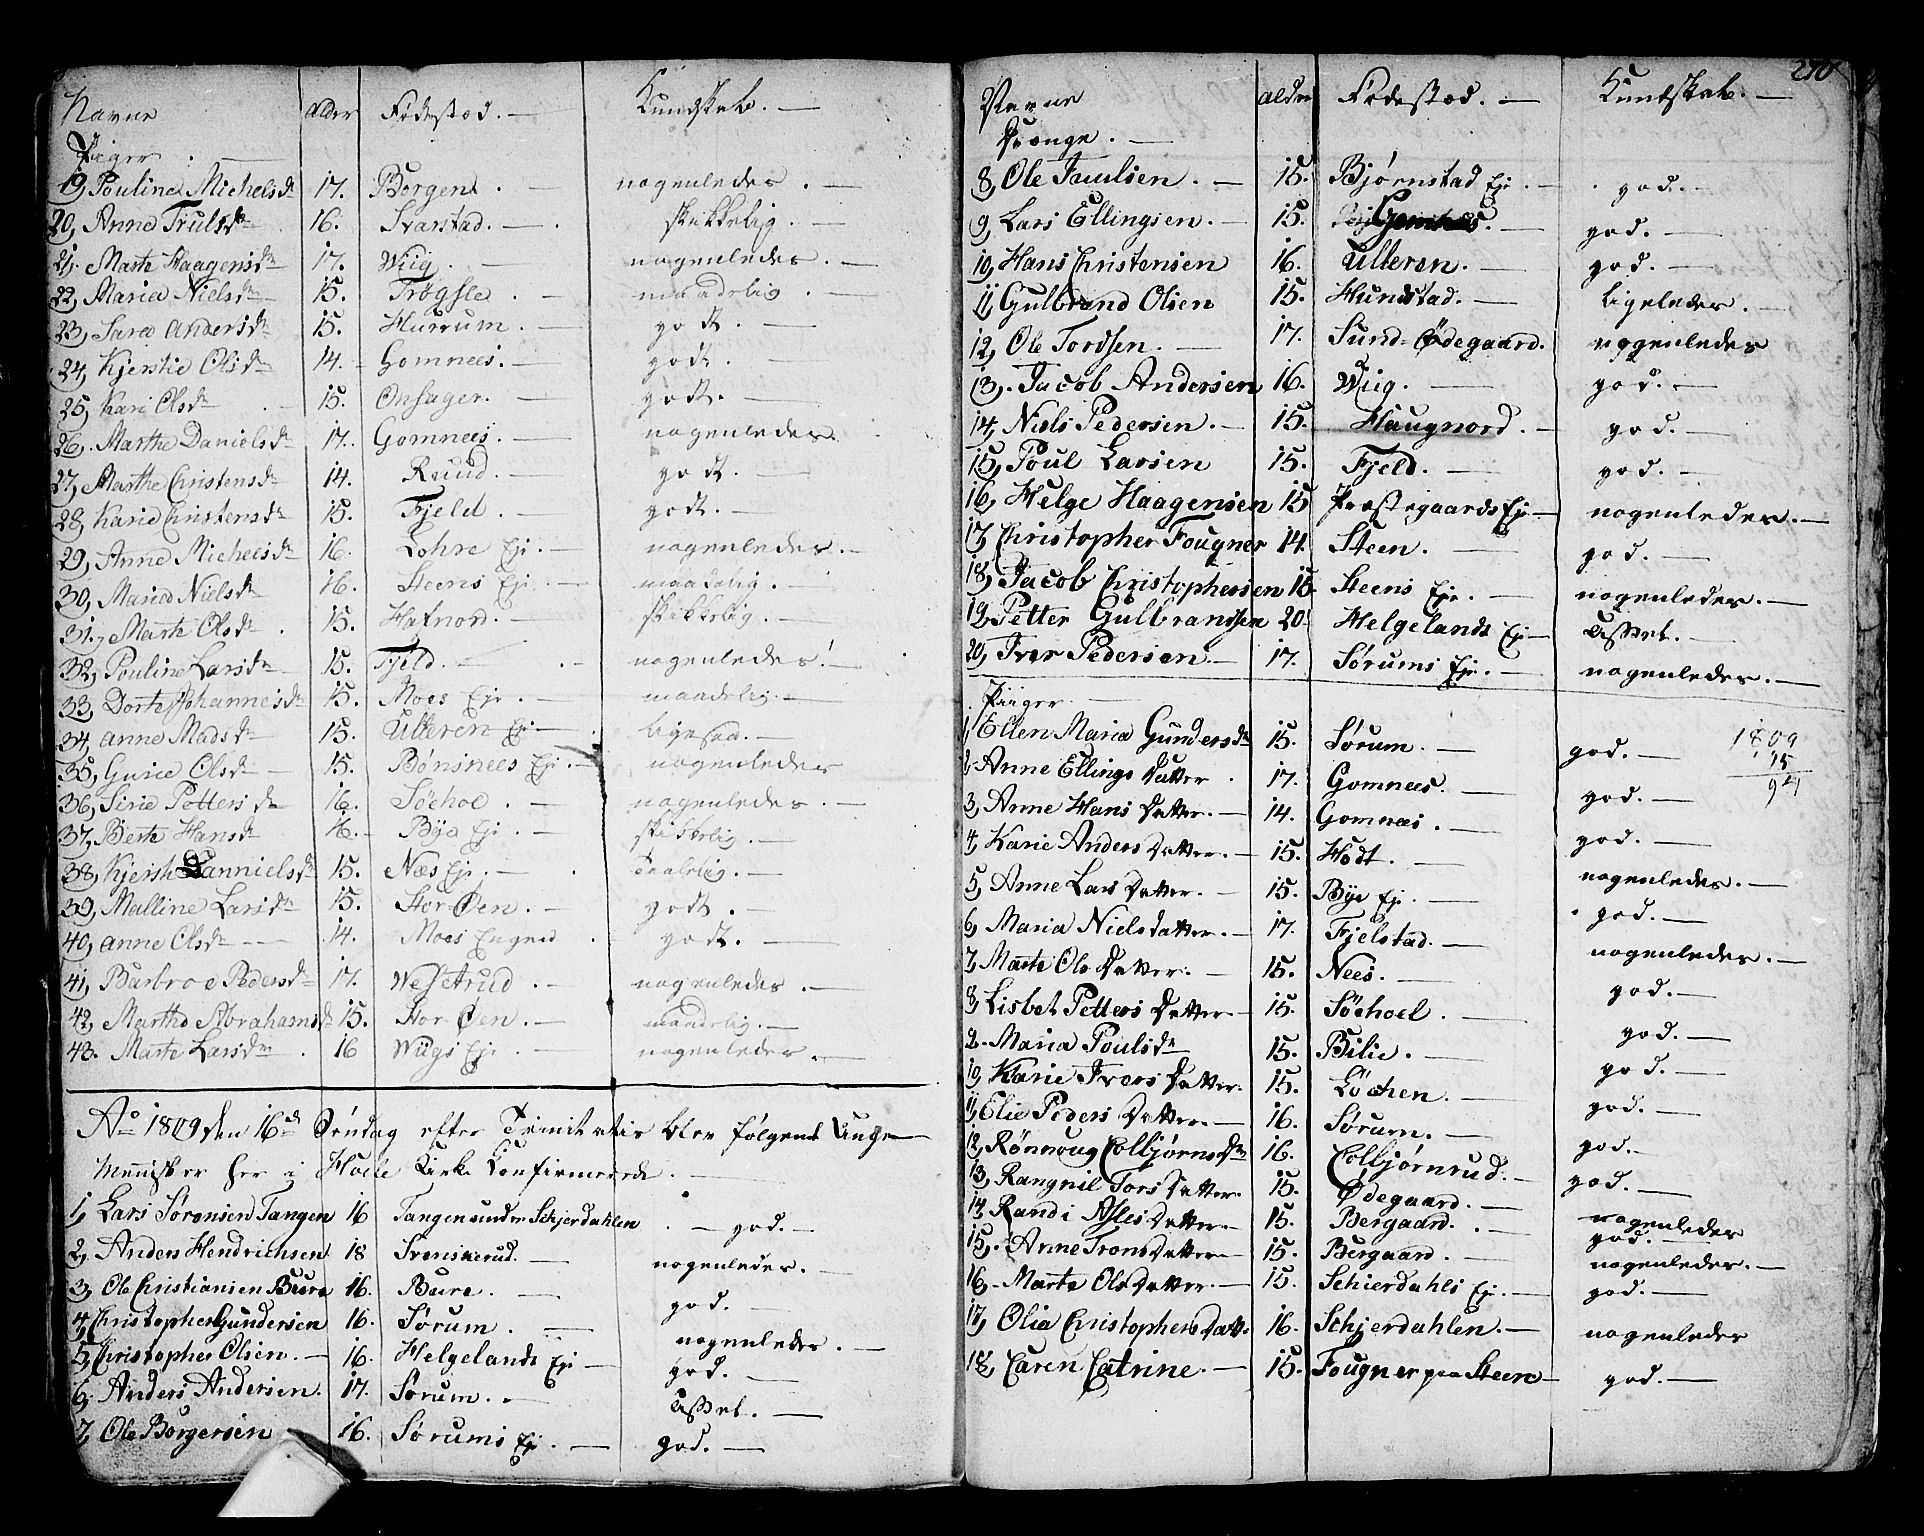 Navne Alder Fødestæd. Kundskab.
Piger
19, Pouline Michelsdr 17. Borgen nogenledes.
20, Anne Trulsdr 16. Svarstad. skikkelig.
21. Marte Haagensdr 17. Wiig. nogenledes.
22, Maria Nielsdr 15. Trøgsle maadelig.
23, Sara Andersdr 15. Hurrum. godt.
24, Kjerstie Olsdr 14. Gomnees. godt.
25, Kari Olsdr 15. Onsager. godt.
26. Marthe Danielsdr 17. Gomnees. nogenledes.
27, Marthe Christensdr 14. Ruud. godt.
28, Karie Christensdr 15. Fjeld. godt.
29, Anne Michelsdr 16. Lohre Eje. nogenledes.
30, Maria Nielsdr 16. Steens Eje. maadelig.
31. Marte Olsdr 15. Hafnord. skikkelig.
32, Pouline Larsdr 15. Fjeld. nogenledes.
33, Dorte Johannesdr 15. Moes Eje. maadelig.
34, Anne Madsdr 15. Ulleren Eje ligesaa.
35, Gurie Olsdr 15. Bønsnees Eje. nogenledes
36, Sirie Pettersdr 16. Søehoel. nogenledes.
37, Berte Hansdr 16. Bye Eje. skikkelig.
38, Kjersti Dannielsdr 15. Næs Eje. taalelig.
39, Malline Larsdr 15. Stor-Øen. godt.
40, Anne Olsdr 14. Moes Engned godt.
41, Barbroe Pedersdr 17. Wesetrud nogenledes.
42, Marthe Abrahamsdr 15. Stor-Øen. maadelig.
43. Marte Larsdr 16 Wiigs Eje. nogenledes.
Ao 1809 den 16de Søndag efter Trinitatis blev følgende Unge
Mennisker her i Hoele Kirke Confirmerede.
1, Lars Sørensen Tangen 16 Tangen under Schjerdahlen god.
2, Anders Hendrichsen 18 Svensverud. nogenledes.
3, Ole Christiansen Bure 16. Bure. god.
4, Christopher Gundersen 16. Sørum. nogenledes.
5, Christopher Olsen. 16. Helgelands Eje god.
6. Anders Andersen. 17. Sørum.
7, Ole Borgersen 16. Sørums Eje. god.
270
Navne Alder Fødestæd. Kundskab.
Drenge.
8, Ole Paulsen. 15. Bjørnstad Eje. god.
9, Lars Ellingsen. 15. Gomnees. god.
10, Hans Christensen 16. Ulleren. god.
11, Gulbrand Olsen 15. Hundstad. ligeledes.
12, Ole Tordsen. 17. Sund-Ødegaard. nogenledes
13. Jacob Andersen 16. Wiig. god.
14, Niels Pedersen. 15. Haugnord. god.
15, Poul Larsen 15. Fjeld. god.
16, Helge Haagensen 15 Præstegaards Eje nogenledes.
17, Christopher Fougner 14. Steen. god.
18, Jacob Christophersen 15. Steens Eje. nogenledes.
19, Petter Gulbrandsen 20. Helgelands Eje
20, Iver Pedersen. 17. Sørums Eje. nogenledes.
Piiger
1, Ellen Maria Gundersdr 15. Sørum. god. 1809
15
94
2, Anne Ellings Datter 17. Gomnees. god.
3, Anne Hans Datter. 14. Gomnæs. god.
4, Karie Anders Datter. 15. Hodt. nogenledes.
5, Anne Lars Datter. 15. Bye Eje. god.
6, Maria Niels datter. 17. Fjelstad. nogenledes.
7, Marte Ole Datter. 15. Nees. god.
8, Lisbet Petters Datter 15. Söehoel. god.
9. Maria Poulsdr 15. Bilie. god.
10, Karie Ivers Datter. 15. Löchen. god.
11, Elie Peders Datter. 16. Sørum. god.
12, Rönnoug Colbjørnsdr 16. Colbjørnrud. god.
13, Rangnil Tors Datter. 15. Ødegaard. nogenledes
14, Randi Asles Datter. 15. Bergaard. god.
15. Anne Trons Datter 15. Bergaard. nogenledes.
16. Marte Ols Datter. 15. Schierdahls Eje. god.
17, Olia Christophers Datt. 16. Schjerdahlen. nogenledes
18, Caren Catrine. 15. Fougner paa Steen god.